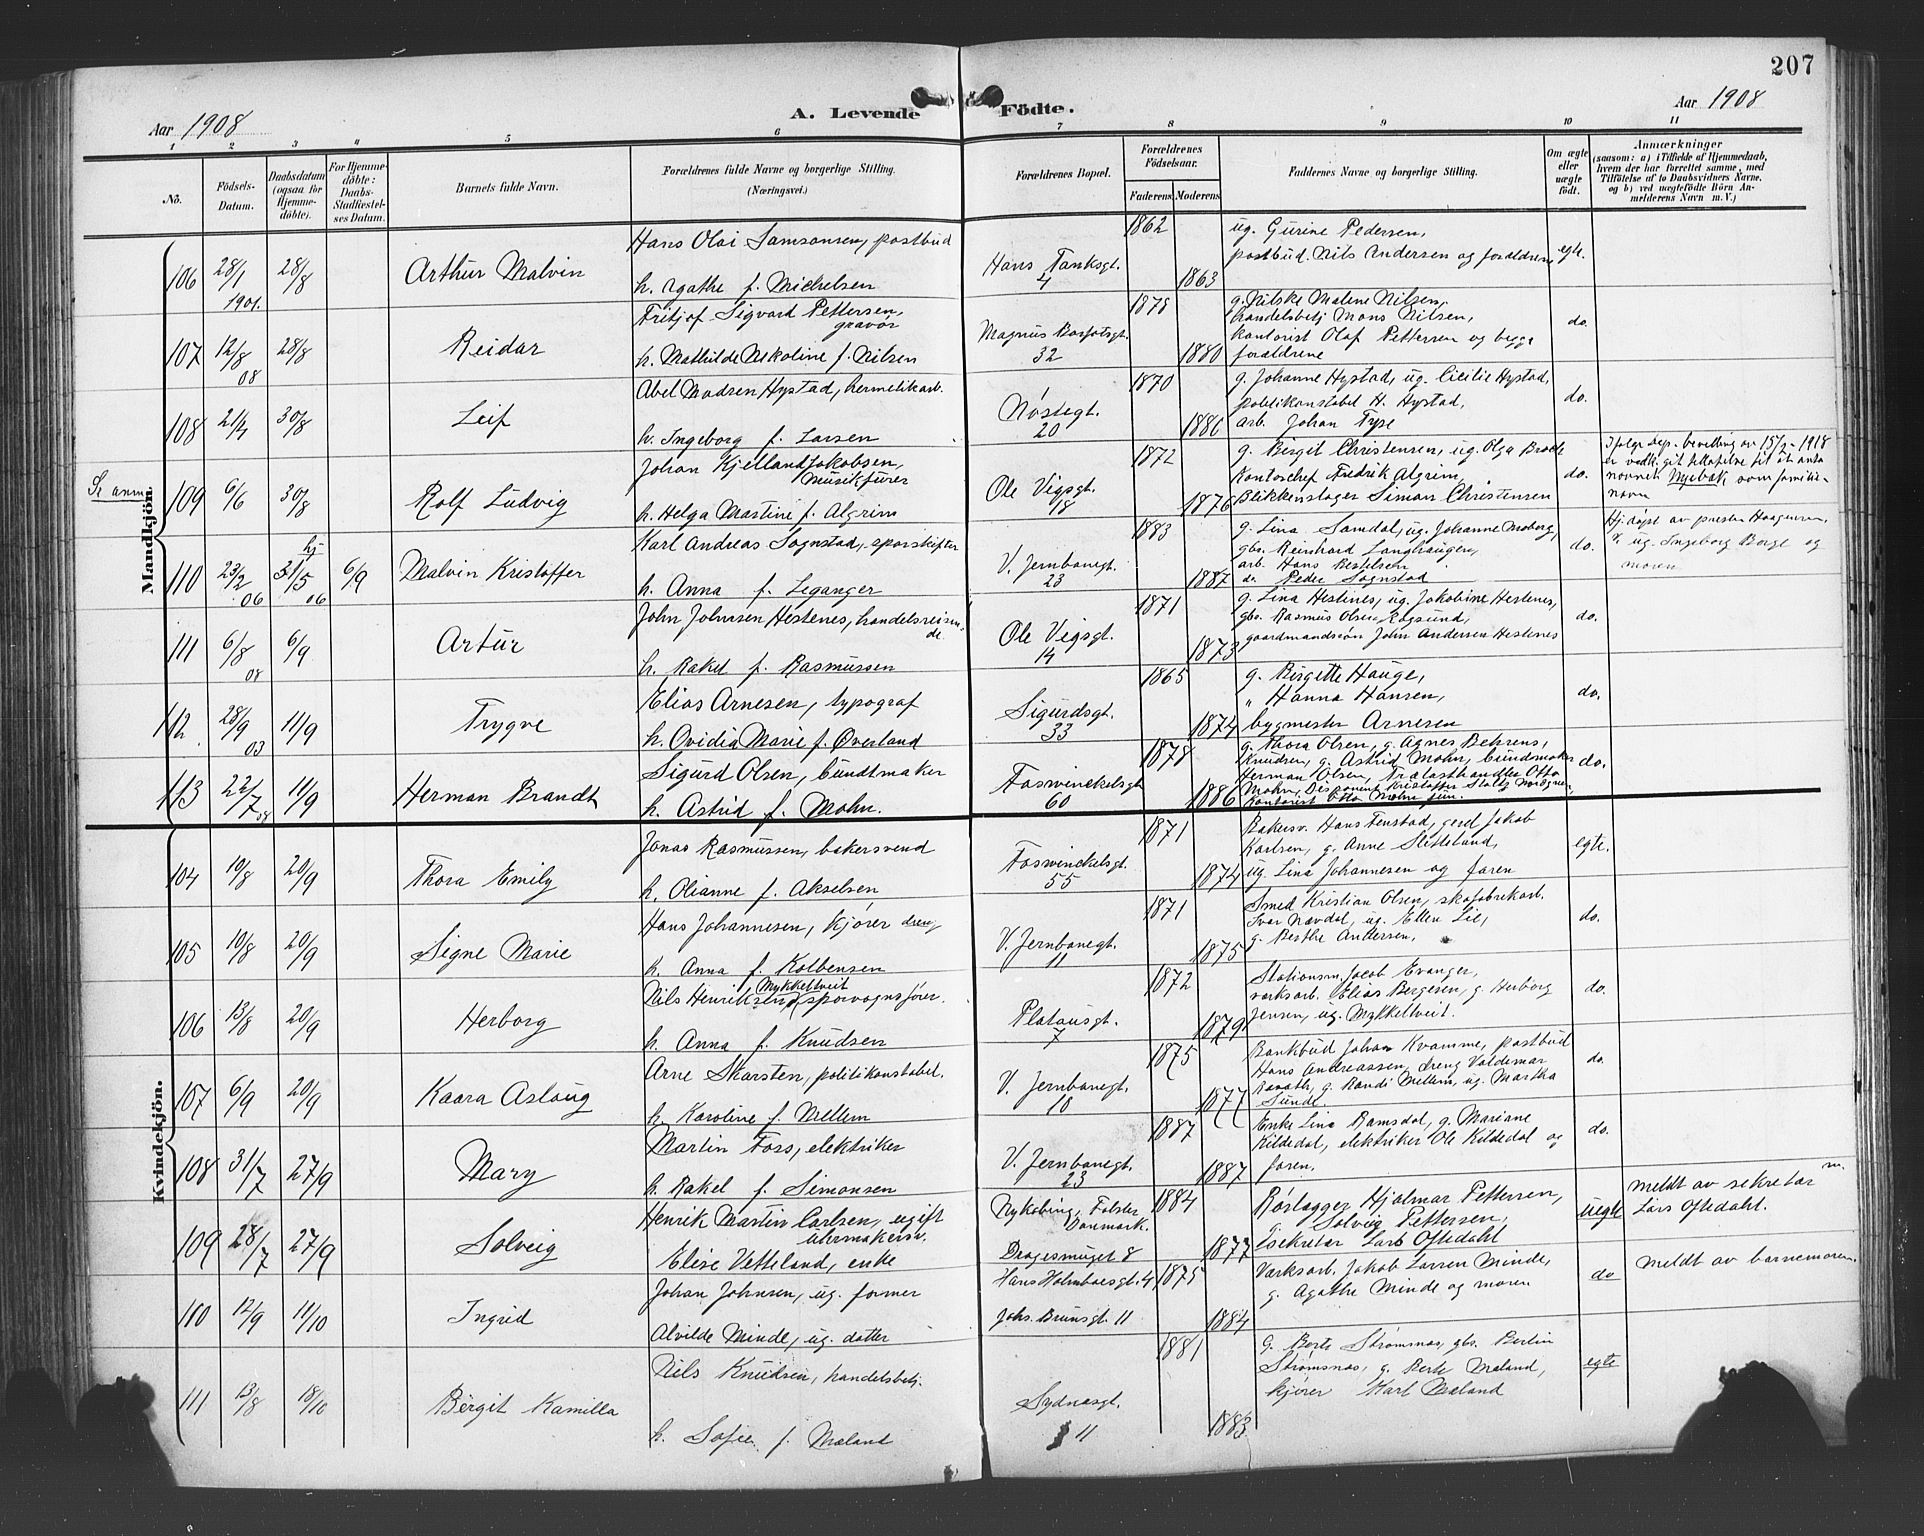 207
Aar 1908
A. Levende Födte.
Aar 1908
1 2 3 4 5 6 7 8 9 10 11
No.
Födsels-Datum.
Daabsdatum (ogsaa for Hjemmedöbte).
For Hjemmedöbte: Daabs-Stadfæstelses Datum.
Barnets fulde Navn.
Forældrenes fulde Navne og borgerlige Stilling. (Næringsvei.)
Forældrenes Bopæl.
Forældrenes Födselsaar.
Faderens Moderens
Faddernes Navne og borgerlige Stilling.
Om ægte eller uægte födt.
Anmærkninger
(saasom: a) i Tilfælde af Hjemmedaab, hvem der har forrettet samme, med Tilföielse af to Daabsvidners Navne, og b) ved uægtefödte Börn Anmelderens Navn m. V.)
Mandkjön.
106 28/1 1901. 28/8 Arthur Malvin
Hans Olai Samsonsen, postbud
h. Agathe f. Michelsen
Hans Tanksgt. 4
1862 1863
ug. Gurine Pedersen,
postbud. Nils Andersen og forældrene
egte.
107 12/8 08 28/8 Reidar
Fritjof Sigvard Pettersen, gravör
h. Mathilde Nikoline f. Nilsen
Magnus Barfotsgt. 32
1878 1880
g. Nilske Malene Nilsen,
handelsbetj Mons Nilsen,
kontorist Olaf Pettersen og begge
forældrene
do.
108 21/7 30/8 Leif
Abel Madsen Hystad, hermetikarb.
h. Ingeborg f. Larsen
Nøstegt. 20
1870 1886
g. Johanne Hystad, ug. Cicilie Hystad,
politikonstabel H. Hystad,
arb. Johan Tyse
do.
Se anm.
109 6/6 30/8 Rolf Ludvig
Johan Kjelland Jakobsen, Musikfürer
h. Helga Martine f. Algrim
Ole Vigsgt. 18
1872 1876
g. Birgit Christensen, ug. Olga Brock
Kontorchef Fredrik Algrim,
Blikkenslager Simon Christensen
do.
Ifølge Dep. bevilling av 15/2-1918
er vedk. git tilladelse til at anta
navnet Nybak som familienavn
110 23/2 06 hj. 31/5 06 6/9 Malvin Kristoffer
Karl Andreas Sognstad, sporskifter
h. Anna f. Leganger
V. Jernbanegt. 23
1883 1887
g. Lina Samdal, ug. Johanne Moberg,
gbr. Reinhard Langhaugen,
arb. Hans Bertelsen
do. Peder Sognstad
do.
Hj. døpt av presten Haagensen,
V. ug. Ingeborg Borge og
moren
111 6/8 08 6/9 Artur
John Johnsen Hestenes, handelsreisende
h. Rakel f. Rasmussen
Ole Vigsgt. 14
1871 1873
g. Lina Hestenes, ug. Jakobine Hestenes,
gbr. Rasmus Olsen Rogsund,
gaardmandssön John Andersen Hestenes
do.
112 28/9 03 11/9 Trygve
Elias Arnesen, typograf
h. Ovidia Marie f. Øverland
Sigurdsgt. 33
1865 1874
g. Birgitte Hauge,
" Hanna Hansen,
bygmester Arnesen
do.
113 22/7 08 11/9 Herman Brandt
Sigurd Olsen, bundtmaker
h. Astrid f. Mohn.
Fosswinckelsgt 60
1878 1886
g. Thora Olsen, g. Agnes Behrens,
Knudsen, g. Astrid Mohn, bundmaker
Herman Olsen, Trælasthandler Otto
Mohn, Disponent Kristoffer Stoltz
Kontorist Otto Mohn jun.
do.
Kvindekjön.
104 10/8 20/9 Thora Emily
Jonas Rasmussen, bakersvend
h. Olianne f. Akselsen
Fosswinckelsgt. 55
1871 1874
Bakersv. Hans Tenstad, Jakob
Karlsen, g. Anne Sletteland,
ug. Lina Johannesen og faren
egte.
105 10/8 20/9 Signe Marie
Hans Johannesen, kjöredreng
h. Anna f. Kolbensen
V. Jernbanegt. 11
1871 1875
Smed Kristian Olsen, skofabrikarb.
Ivar Mavdal, ug. Ellen Lie,
g. Berthe Andersen,
do.
106 13/8 20/9 Herborg
Nils Henriksen Mykkeltveit, sporvognsfører.
h. Anna f. Knudsen
Platousgt. 7
1872 1879
Stationsm. Jacob Evanger,
værksarb. Elias Bergesen, g. Herborg
Jensen, ug. Mykkeltveit.
do.
107 6/9 20/9 Kaara Aslaug
Arne Skarsten, politikonstabel.
h. Karoline f. Mellem
V. Jernbanegt. 10
1875 1877
Bankbud Johan Kvamme, postbud
Hans Andreassen, dreng Valdemar
g. Randi Mellem, ug. Martha
Sunde.
do.
108 31/7 27/9 Mary
Martin Foss, elektriker
h. Rakel f. Simonsen
V. Jernbanegt. 23
1887 1887
Enke Lina Ramsdal, g. Mariane
Kildedal, elektriker Ole Kildedal og
faren.
do.
109 28/7 27/9 Solveig
Henrik Martin Carlsen, ugift uhrmakersv.
Elise Vetteland, enke
Nykøbing, Falster Danmark.
Dragesmuget 8
1884 1877
Rørlægger Hjalmar Pettersen,
Solveig Pettersen,
Sekretær Lars Oftedahl
uegte
meldt av sekretær
Lars Oftedahl.
110 12/9 11/10 Ingrid
Johan Johnsen, ug. former
Alvilde Minde, ug. datter
Hans Holmboesgt. 4
Johs. Brunsgt. 11
1875 1884
Værksarb. Jakob Larsen Minde,
g. Agathe Minde og moren
do
meldt av barnemoren.
111 13/8 18/10 Bergit Kamilla
Nils Knudsen, handelsbetj.
h. Sofie f. Mæland
Sydnæsgt. 11
1881 1883
G. Berte Strømsnæs, gbr. Berlin
Strømsnæs, g. Berte Mæland,
kjører Karl Mæland
egte